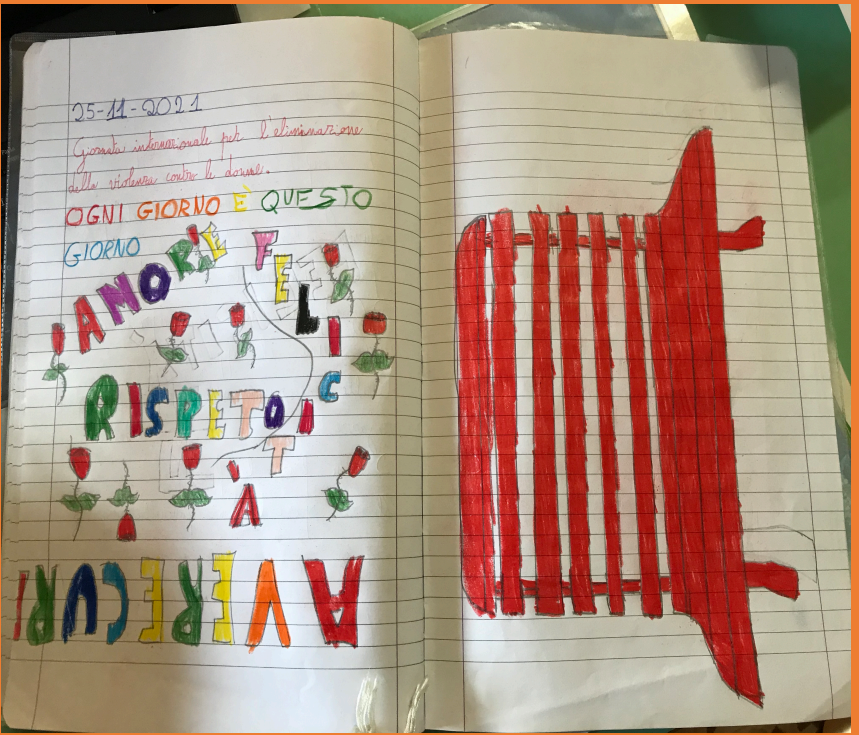 25-11-2021
Giornata internazionale per l'eliminazione
della violenza contro le donne.
OGNI GIORNO È QUESTO
GIORNO
AMOR'E
FELICIT'A
RISPETO
AVERE